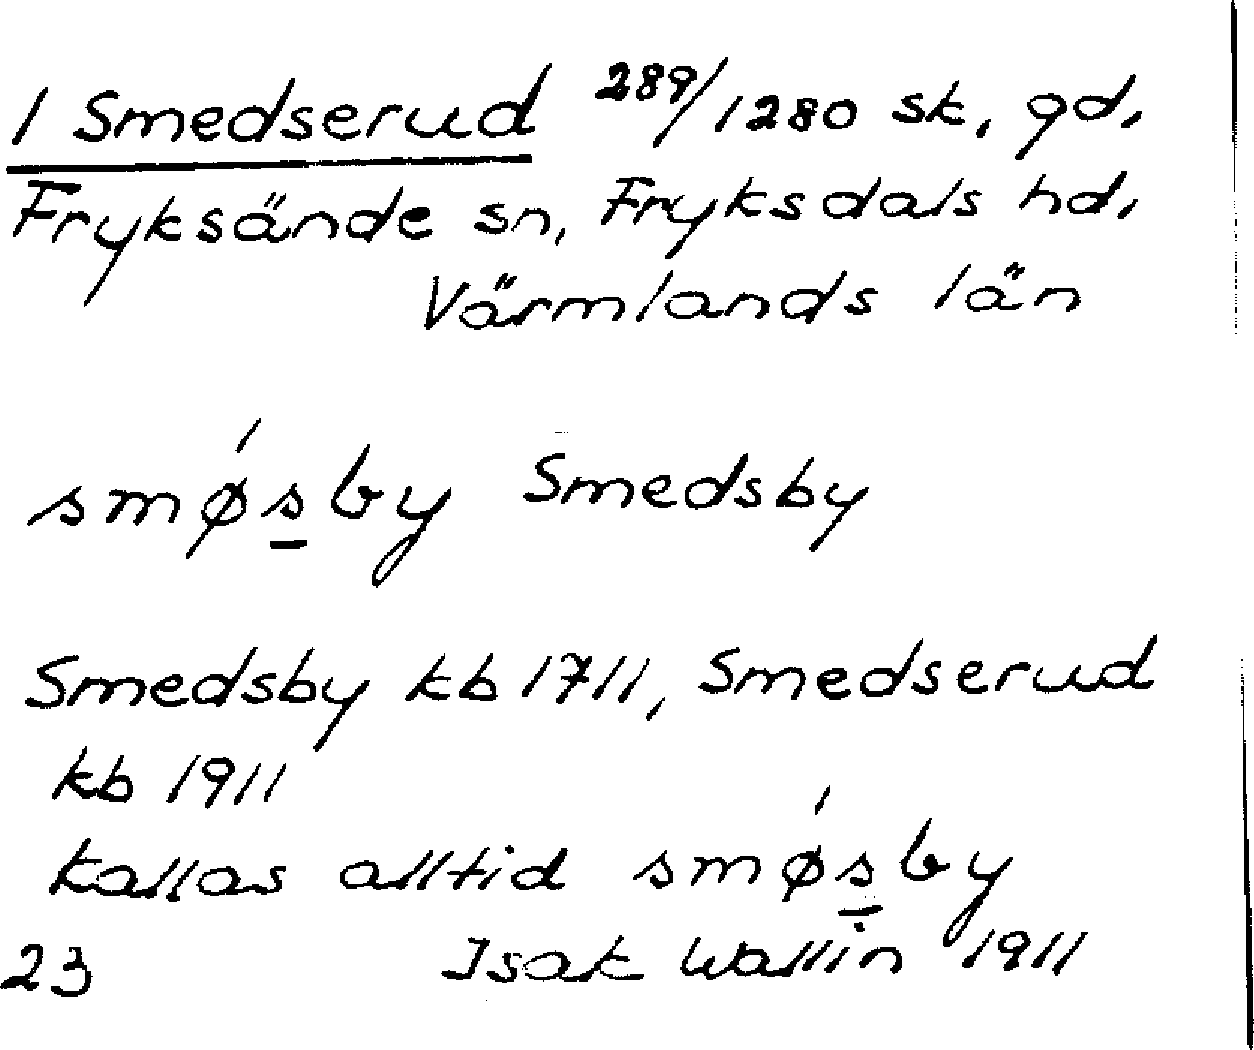 1 Smedserud 289/1280 sk, gd,
Fryksände sn, Fryksdals hd,
Värmlands län
smǿs̲by Smedsby
Smedsby kb 1711, Smedserud
kb 1911
kallas alltid smǿs̲by
23 Isak Wallin 1911